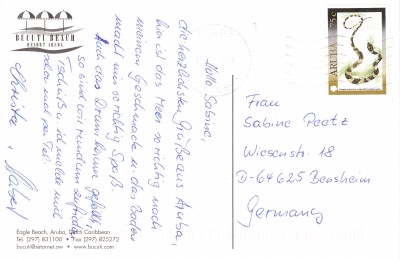 BUCUTI BEACH
RESORT ARUBA
Hallo Sabine,
die herzlichsten Grüße aus Aruba,
hier ist das Meer so richtig nach
meinem Geschmack u. das Baden
macht mir so richtig Spaß.
Auch das Drum herum gefällt,
so sind wir rundum zufrieden.
Tschüß u. ich melde mich
dann mal per Tel.
Christa u.
Eagle Beach, Aruba, Dutch Caribbean
Tel. (297) 831100 • Fax (297) 825272
bucuti@setarnet.aw • www.bucuti.com
ARUBA
Frau
Sabine Peetz
Wiesenstr. 18
D-64625 Bensheim
Germany